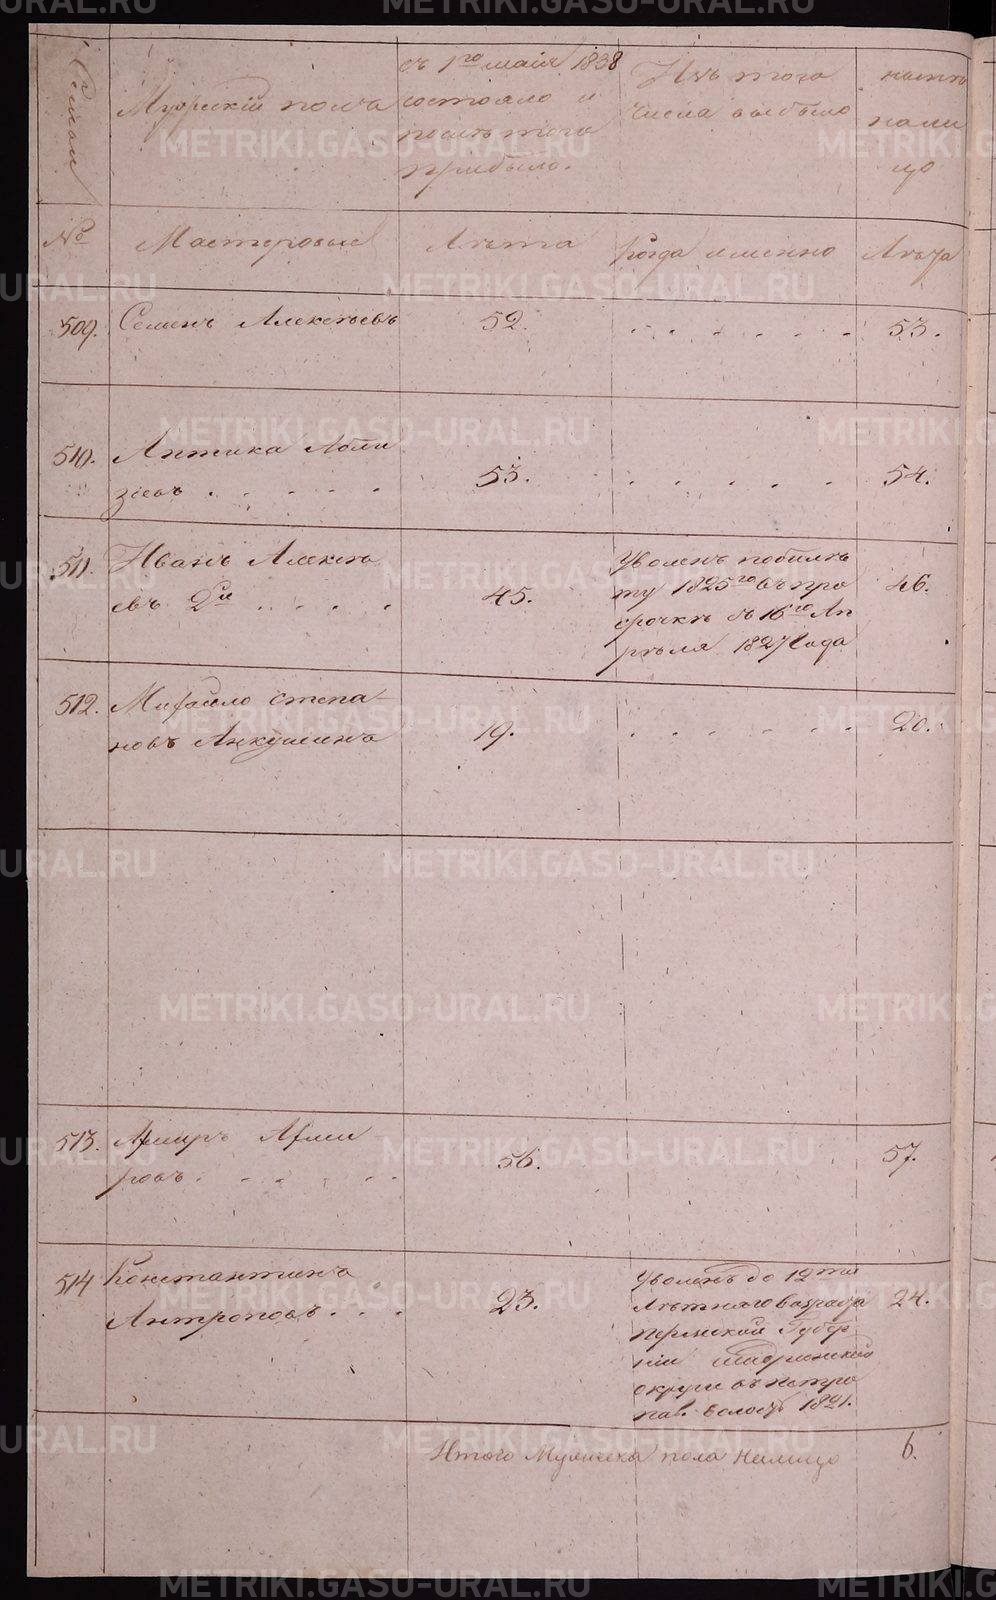 METRIKI.GASO-URAL.RU
Мужескій полъ
съ 1го маія 1838
состояло и
послѣ того
прибыло.
Изъ того
числа выбыло
нынѣ
нали
цо
№
Мастеровые
Лѣта
Когда именно
Лѣта
509.
Семенъ Алексѣевъ
52.
53.
510.
Антика
зіевъ
53.
54.
511.
Иванъ Алексѣ
евъ 2й
45.
Уволенъ побилѣ
ту 1825го въ про
срочкѣ съ 16го Ап
рѣля 1827 Года
46.
512.
Михайло Степа-
новъ Анкушинъ
19.
20.
513.
ровъ
56.
57.
514
Константинъ
Антроповъ
23.
Уволенъ до 12ти
Лѣтняго возраста
Пермской Губер
ніи Шадринской
округи въ петро
пав. волость 1821.
24.
Итого Мужеска пола налицо
6.